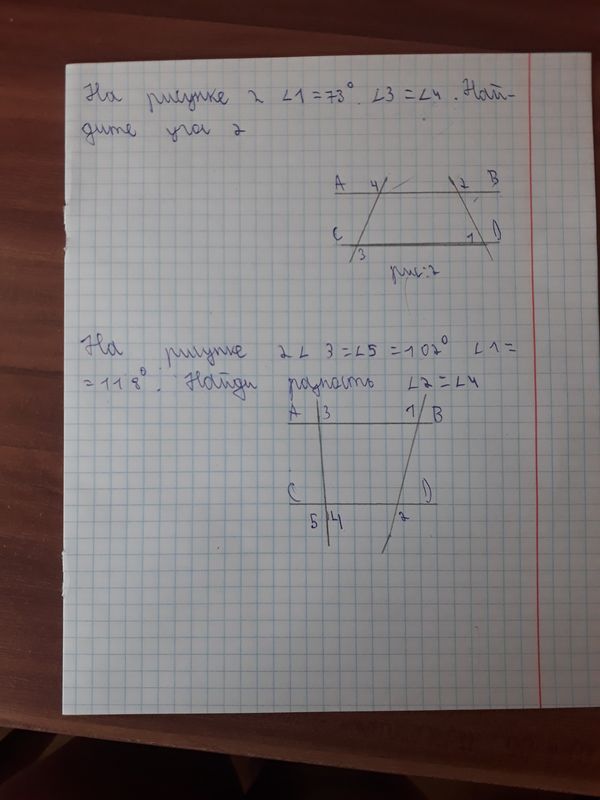 На рисунке 2 ∠1=73°. ∠3=∠4. Най-
дите угол 2
A 4 2 B
C 3 1 D
рис:2
На рисунке 2 ∠3=∠5=102° ∠1=
=118°. Найди разность ∠2=∠4
A 3 1 B
C D
5 4 2